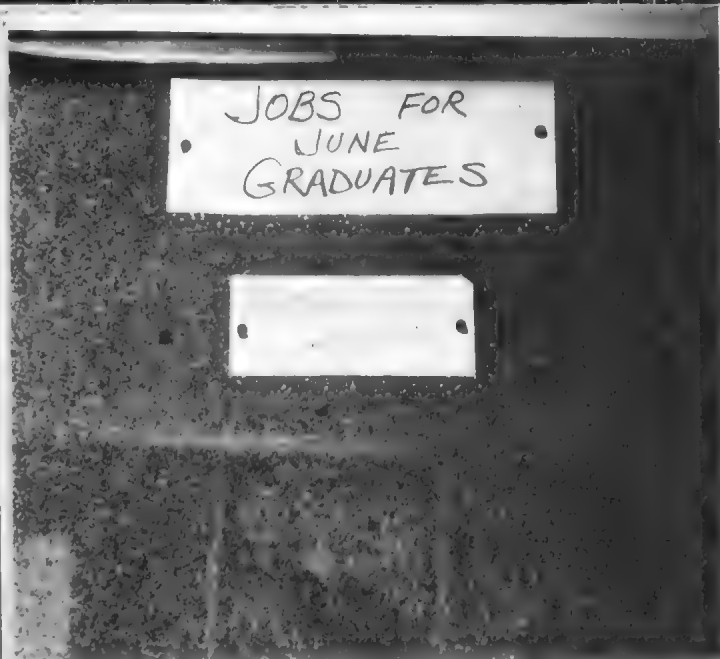 JOBS FOR
JUNE
GRADUATES